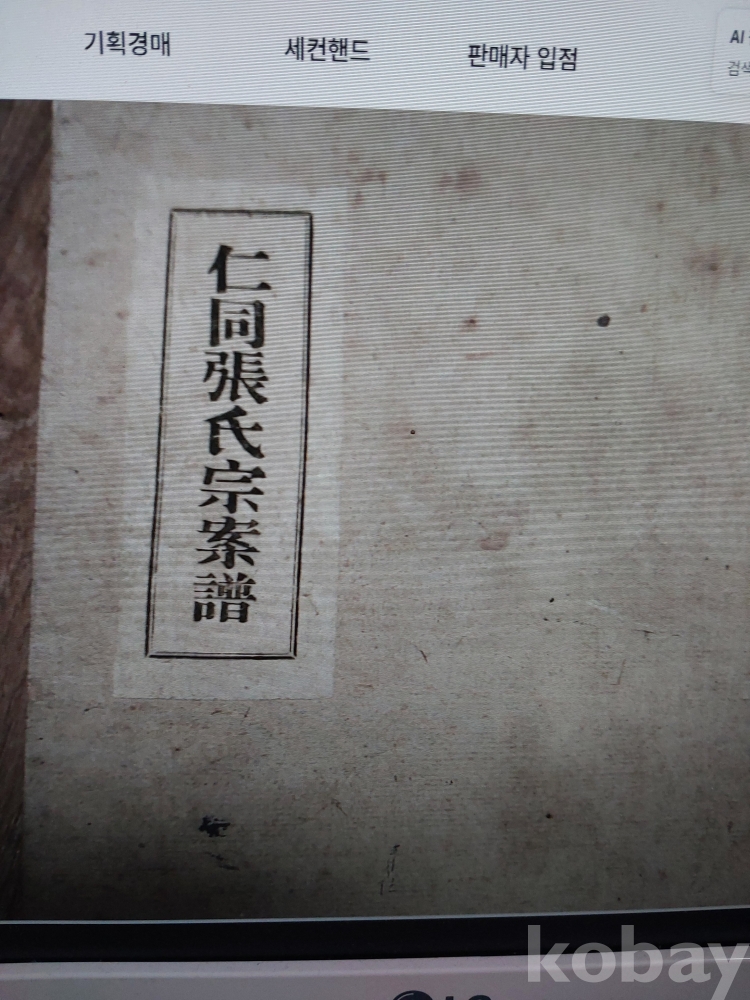 기획경매 세컨핸드 판매자 입점
AI
검색
仁同張氏宗案譜
kobay
LG